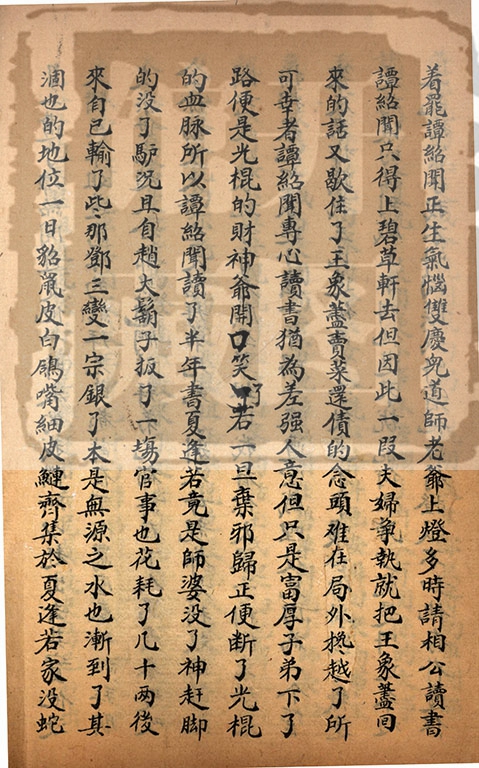 着罷譚紹聞正生氣惱雙慶兒道師老爺上燈多時請相公讀書
譚紹聞只得上碧草軒去但因此一叚夫婦争執就把王象藎囬
來的話又歇住了王象藎賣菜還債的念頭难在局外攙越了所
可幸者譚紹聞專心讀書猶為差强人意但只是富厚子弟下了
路便是光棍的財神爺開口笑了若一旦棄邪歸正便断了光棍
的血脉所以譚紹聞讀了半年書夏逢若竟是師婆没了神赶脚
的没了馿况且自趙大鬍子扳了一塲官事也花耗了几十两後
來自已輸了些那鄧三變一宗銀了本是無源之水也漸到了其
涸也的地位一日貂鼠皮白鴿嘴細皮鰱齊集於夏逢若家没蛇